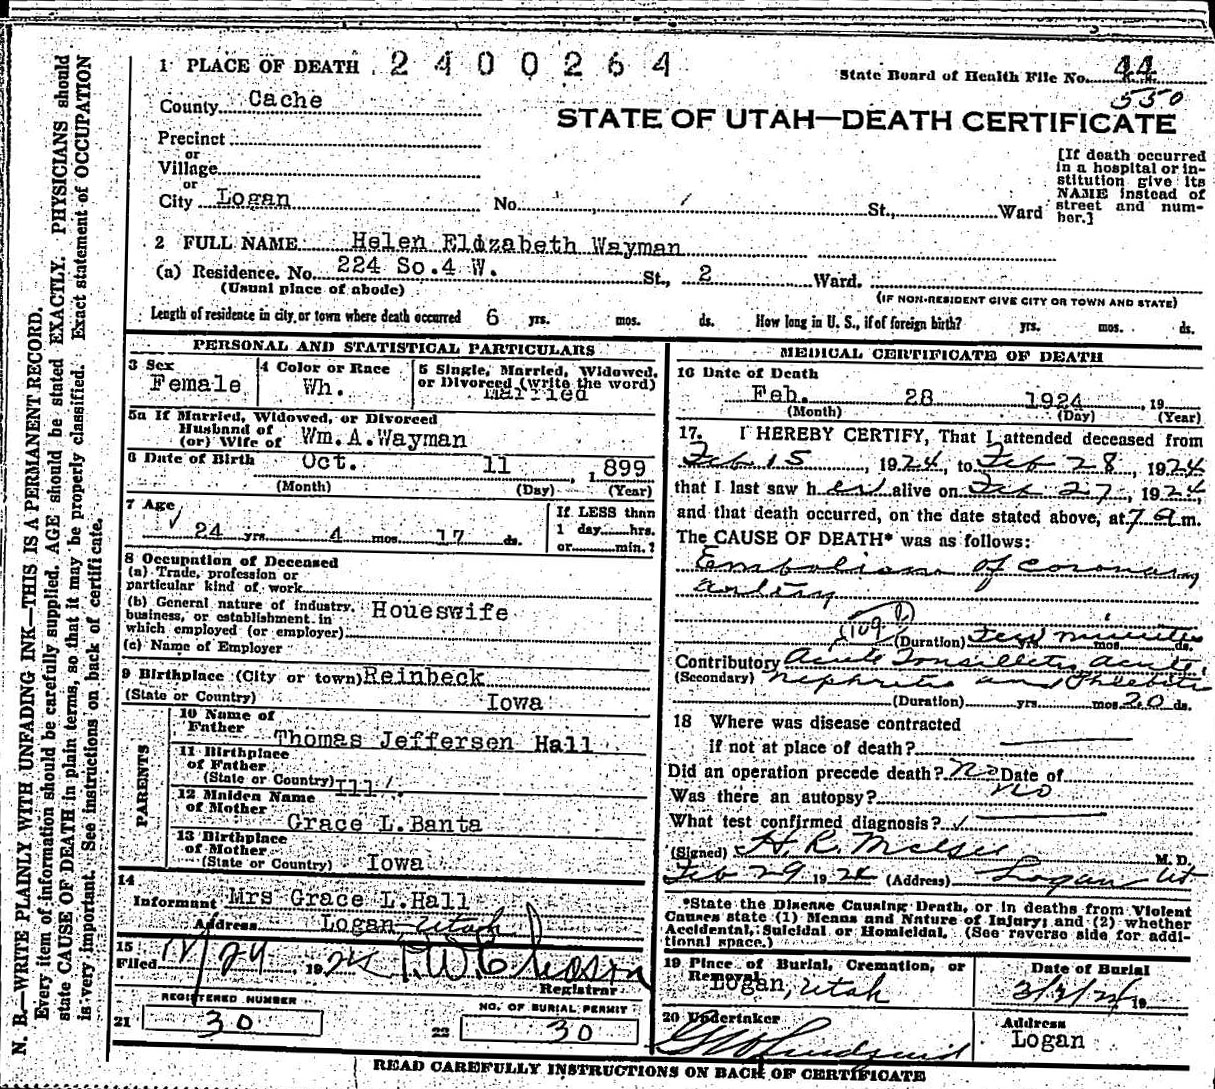 1 PLACE OF DEATH 2400264
State Board of Health File No. 44
550
County Cache
STATE OF UTAH—DEATH CERTIFICATE
Precinct
or
Village
or
City Logan No. St., Ward
[If death occurred in a hospital or institution give its NAME instead of street and number.]
2 FULL NAME Helen Elizabeth Wayman
(a) Residence. No. 224 So. 4 W. St., 2 Ward.
(Usual place of abode)
(IF NON-RESIDENT GIVE CITY OR TOWN AND STATE)
Length of residence in city or town where death occurred 6 yrs. mos. ds. How long in U. S., if of foreign birth? yrs. mos. ds.
PERSONAL AND STATISTICAL PARTICULARS
3 Sex
Female
4 Color or Race
Wh.
5 Single, Married, Widowed, or Divorced (write the word)
Married
5a If Married, Widowed, or Divorced
Husband of
(or) Wife of Wm. A. Wayman
6 Date of Birth Oct. 11, 1899
(Month) (Day) (Year)
7 Age
24 yrs. 4 mos. 17 ds.
If LESS than
1 day hrs.
or min.?
8 Occupation of Deceased
(a) Trade, profession or
particular kind of work
(b) General nature of industry,
business, or establishment in
which employed (or employer) Houeswife
(c) Name of Employer
9 Birthplace (City or town) Reinbeck
(State or Country) Iowa
PARENTS
10 Name of
Father Thomas Jeffersen Hall
11 Birthplace
of Father
(State or Country) Ill.
12 Maiden Name
of Mother
Grace L. Banta
13 Birthplace
of Mother
(State or Country) Iowa
14
Informant Mrs Grace L. Hall
Address Logan, Utah
15
Filed 1924
Registrar
REGISTERED NUMBER
21 30
NO. OF BURIAL PERMIT
22 30
MEDICAL CERTIFICATE OF DEATH
16 Date of Death
Feb. 28 1924, 19
(Month) (Day) (Year)
17. I HEREBY CERTIFY, That I attended deceased from
Feb 15, 1924, to Feb 28, 1924
that I last saw her alive on Feb 27, 1924,
and that death occurred, on the date stated above, at 7 a m.
The CAUSE OF DEATH* was as follows:
Embolism of coronary
artery
(109) (Duration) Few minutes yrs. mos. ds.
Contributory Acute Tonsilletis, acute
(Secondary) nephritis and Phlebitis
(Duration) yrs. mos. 20 ds.
18 Where was disease contracted
if not at place of death?
Did an operation precede death? No Date of
Was there an autopsy? no
What test confirmed diagnosis?
(Signed) H. R. M. D.
Feb 29 1924 (Address) Logan Ut
*State the Disease Causing Death, or in deaths from Violent
Causes state (1) Means and Nature of Injury; and (2) whether
Accidental, Suicidal or Homicidal. (See reverse side for additional space.)
19 Place of Burial, Cremation, or
Removal
Logan, Utah
Date of Burial
19
20 Undertaker
Address
Logan
READ CAREFULLY INSTRUCTIONS ON BACK OF CERTIFICATE
N. B.—WRITE PLAINLY WITH UNFADING INK—THIS IS A PERMANENT RECORD.
Every item of information should be carefully supplied. AGE should be stated EXACTLY. PHYSICIANS should
state CAUSE OF DEATH in plain terms, so that it may be properly classified. Exact statement of OCCUPATION
is very important. See instructions on back of certificate.